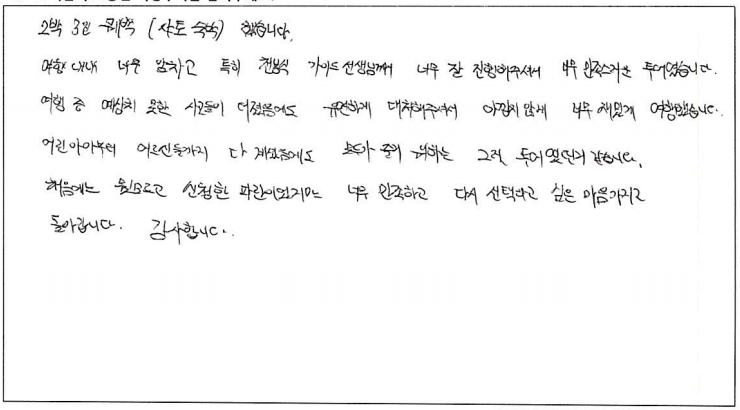 2박 3일 퀘백 (샤토 숙박) 했습니다.
여행 내내 너무 알차고 특히 전봉식 가이드 선생님께서 너무 잘 진행해주셔서 너무 만족스러운 투어였습니다.
여행 중 예상치 못한 시간들이 더졌음에도 유연하게 대처해주셔서 아깝지 않게 너무 재밌게 여행했습니다.
어린아이부터 어르신들까지 다 계셨음에도 모두가 즐거워하는 그런 투어였던거 같습니다.
처음에는 뭣모르고 신청한 파란이었지만 너무 만족하고 다시 선택하고 싶은 마음가지고
돌아갑니다. 감사합니다.